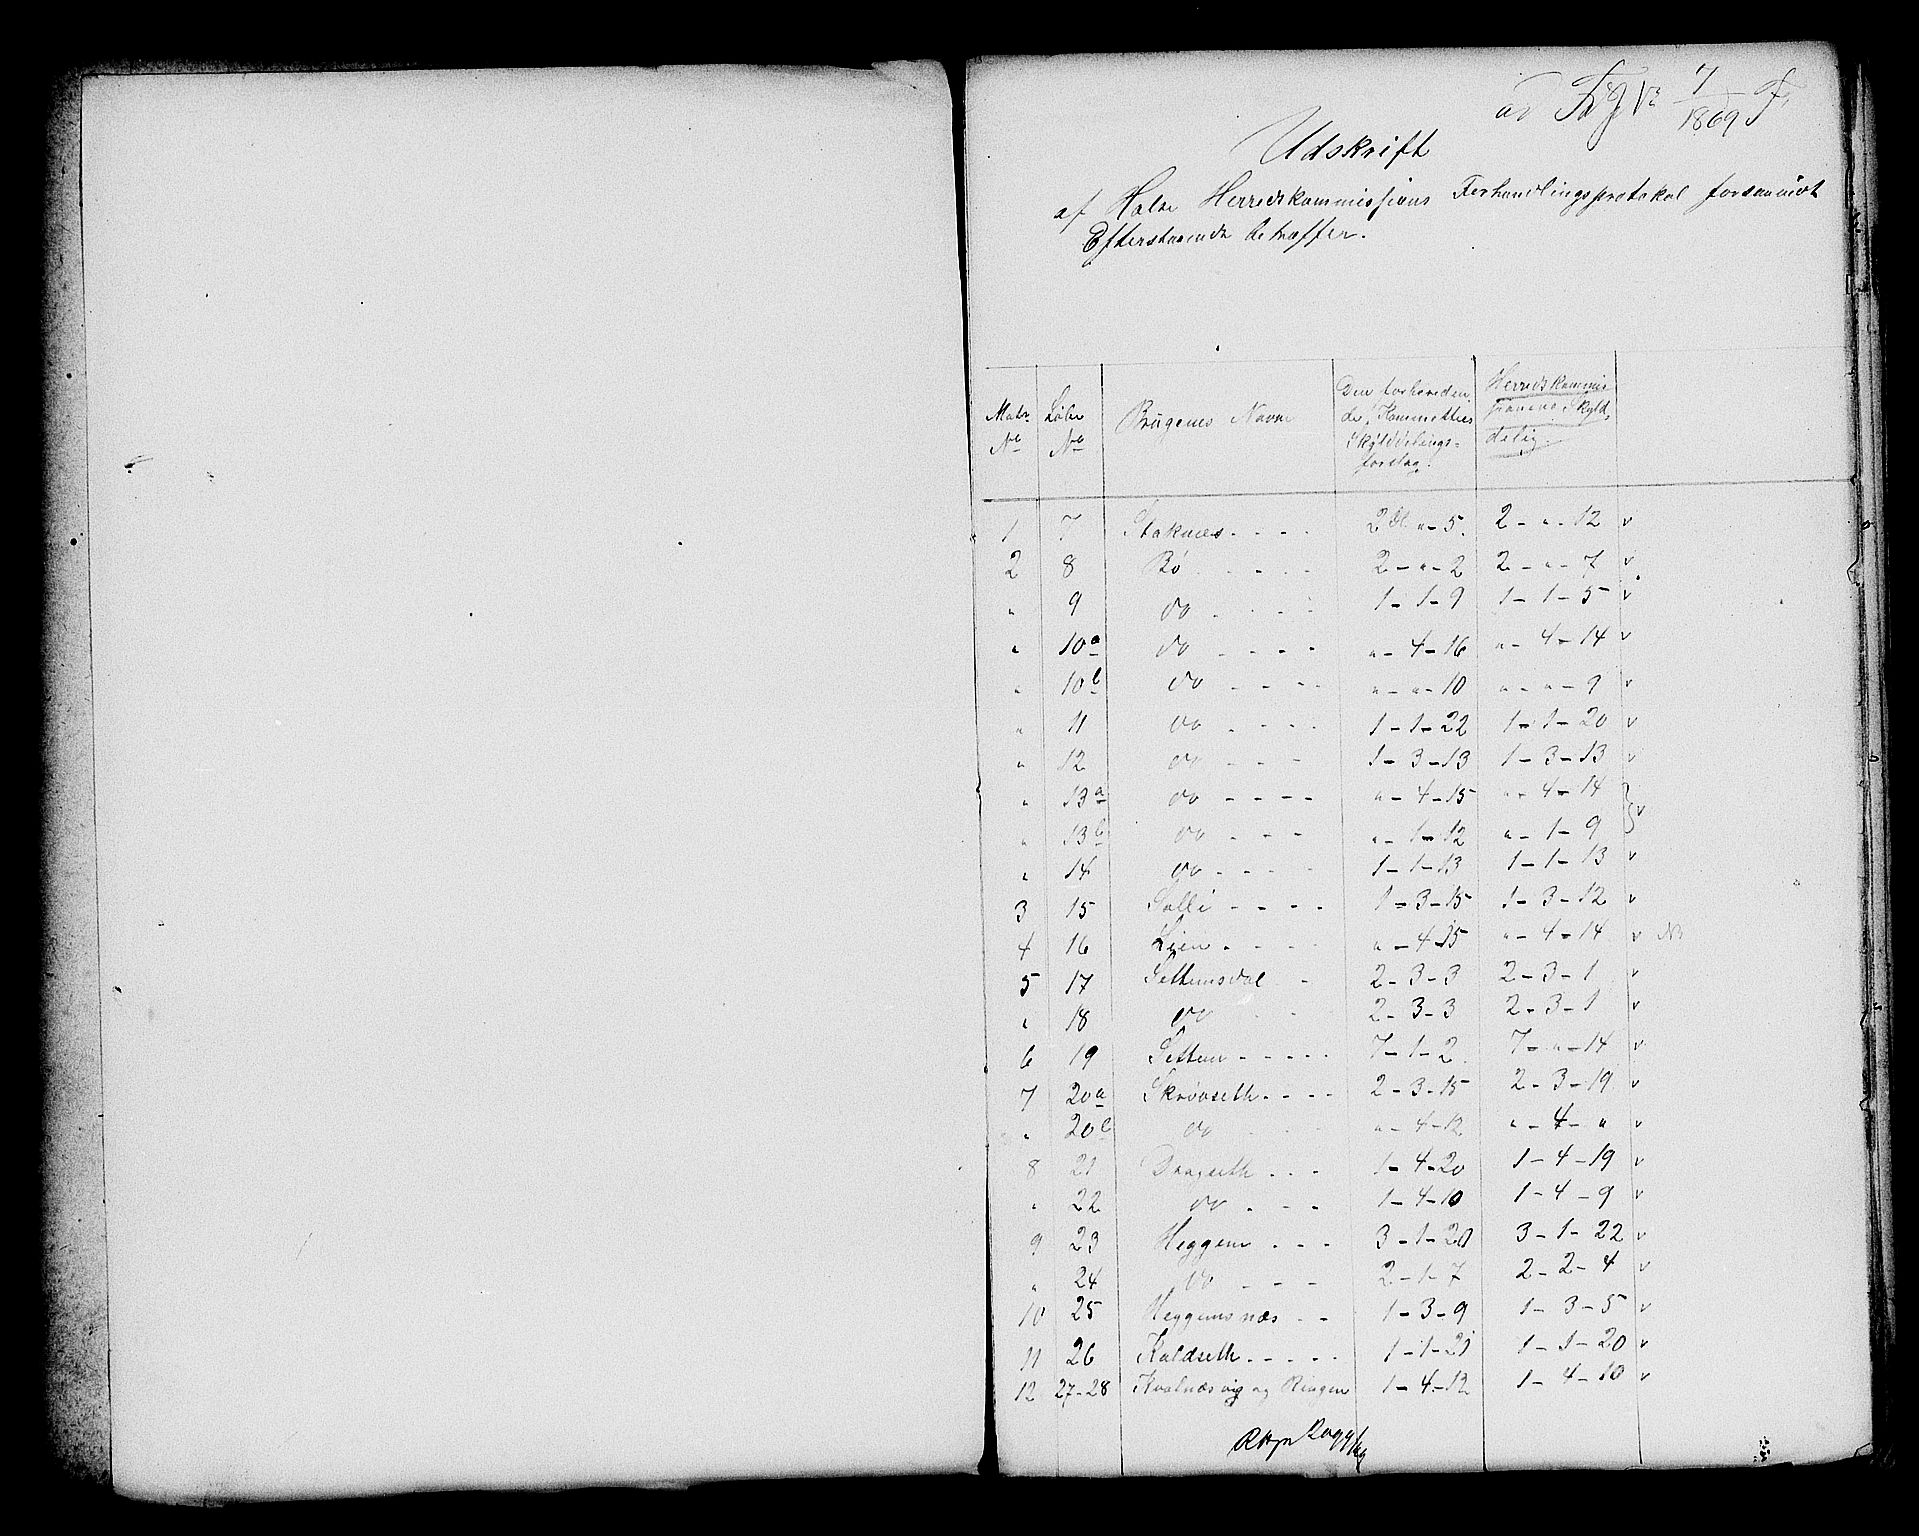 7
1869
Udskrift
af Halse Herredskommissions Forhandlingsprotokol forsaavidt
Efterstaaende betræffer.
Matr. Løbe Brugenes Navne Den forbereden- Herredskommis-
No No de Kommitties sionens Skyld-
Skylddelings- delig.
forslag.
1 7 Staknæs 2 Dl. " - 5. 2 - " - 12 v
2 8 Bø 2 - " - 2 2 - " - 7 v
" 9 do 1 - 1 - 9 1 - 1 - 5 v
" 10a do " - 4 - 16 " - 4 - 14 v
" 10b do " - " - 10 " - " - 9 v
" 11 do 1 - 1 - 22 1 - 1 - 20 v
" 12 do 1 - 3 - 13 1 - 3 - 13 v
" 13a do " - 4 - 15 " - 4 - 14
" 13b do " - 1 - 12 " - 1 - 9 v
" 14 do 1 - 1 - 13 1 - 1 - 13 v
3 15 Solli 1 - 3 - 15 1 - 3 - 12 v
4 16 Lien " - 4 - 15 " - 4 - 14 v
5 17 Settemsdal 2 - 3 - 3 2 - 3 - 1 v
" 18 do 2 - 3 - 3 2 - 3 - 1 v
6 19 Settem 7 - 1 - 2 7 - " - 14 v
7 20a Skrøvseth 2 - 3 - 15 2 - 3 - 19 v
" 20b do " - 4 - 12 " - 4 - " v
8 21 Dragseth 1 - 4 - 20 1 - 4 - 19 v
" 22 do 1 - 4 - 10 1 - 4 - 9 v
9 23 Heggem 3 - 1 - 20 3 - 1 - 22 v
" 24 do 2 - 1 - 7 2 - 2 - 4 v
10 25 Heggemsnæs 1 - 3 - 9 1 - 3 - 5 v
11 26 Kaldseth 1 - 1 - 21 1 - 1 - 20 v
12 27-28 Kvalnæsvig og Ringen 1 - 4 - 12 1 - 4 - 10 v